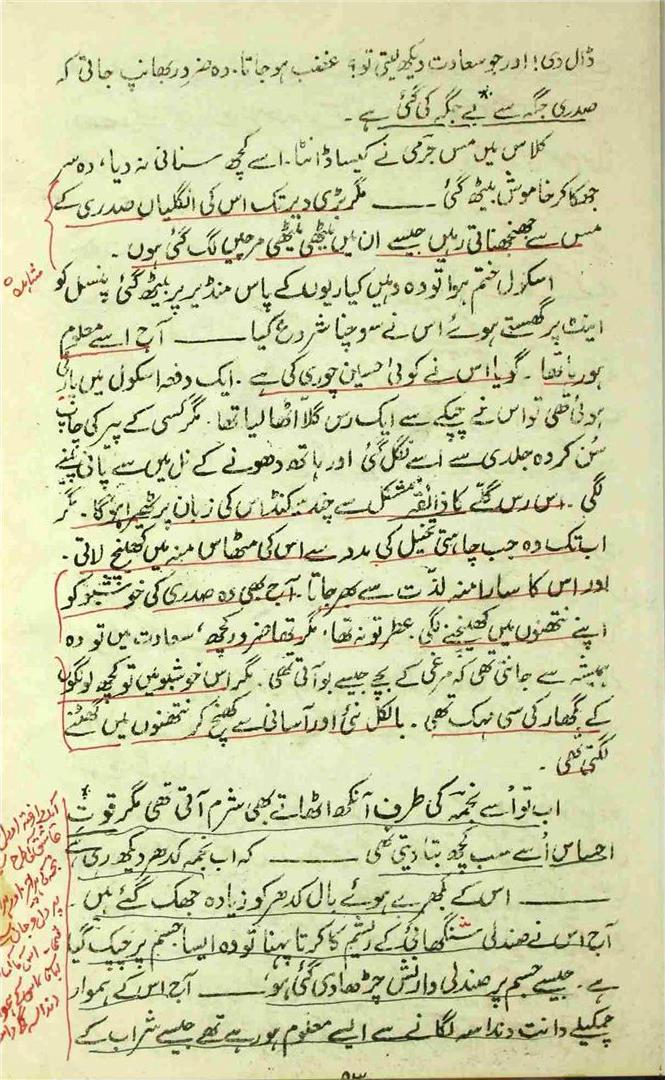 ڈال دی! اور جو سعادت دیکھ لیتی تو؟ غضب ہو جاتا. وہ ضرور بھانپ جاتی کہ
صدری جگہ سے بے جگہ کی گئی ہے۔
کلاس میں مس جرمی نے کیسا ڈانٹا. اسے کچھ سنائی نہ دیا، وہ سر
جھکا کر خاموش بیٹھ گئی۔ — مگر بڑی دیر تک اس کی انگلیاں صدری کے
مس سے جھنجھناتی رہیں جیسے ان میں میٹھی میٹھی مرچیں لگ گئی ہوں۔
مشاہدہ
اسکول ختم ہوا تو وہ وہیں کیاریوں کے پاس منڈیر پر بیٹھ گئی پنسل کو
اینٹ پر گھستے ہوئے اس نے سوچنا شروع کیا — آج اسے معلوم
ہو رہا تھا. گویا اس نے کوئی حسین چوری کی ہے. ایک دفعہ اسکول میں پارٹی
ہوئی تھی تو اس نے چپکے سے ایک رس گلا اٹھا لیا تھا. مگر کسی کے پیر کی چاپ
سُن کر وہ جلدی سے اسے نگل گئی اور ہاتھ دھونے کے نل میں سے پانی پینے
لگی. اس رس گلے کا ذائقہ مشکل سے چند سیکنڈ اس کی زبان پر ٹھہرا ہوگا. مگر
اب تک وہ جب چاہتی تخیل کی مدد سے اس کی مٹھاس منہ میں کھینچ لاتی.
اور اس کا سارا منہ لذّت سے بھر جاتا. آج بھی وہ صدری کی خوشبو کو
اپنے نتھنوں میں کھینچنے لگی. عطر تو نہ تھا، مگر تھا ضرور کچھ، سعادت میں تو وہ
ہمیشہ سے جانتی تھی کہ مرغی کے بچے جیسے بو آتی تھی. مگر اس خوشبو میں تو کچھ لونگوں
کے بگھار کی سی مہک تھی. بالکل نئی اور آسانی سے کھنچ کر نتھنوں میں گھسنے
لگتی تھی.
اب تو اُسے نجمہ کی طرف آنکھ اٹھاتے بھی شرم آتی تھی مگر قوتِ
احساس اُسے سب کچھ بتا دیتی تھی — کہ اب نجمہ کدھر دیکھ رہی ہے
— اس کے بکھرے ہوئے بال کدھر کو زیادہ جھک گئے ہیں۔
آج اس نے صندلی شنگھائی کے ریشم کا کرتا پہنا تو وہ ایسا جسم پر چپک گیا
ہے. جیسے جسم پر صندلی وارنش چڑھا دی گئی ہو — آج اس کے ہموار
چمکیلے دانت دنداسہ لگانے سے ایسے معلوم ہو رہے تھے جیسے شراب کے
۹۳